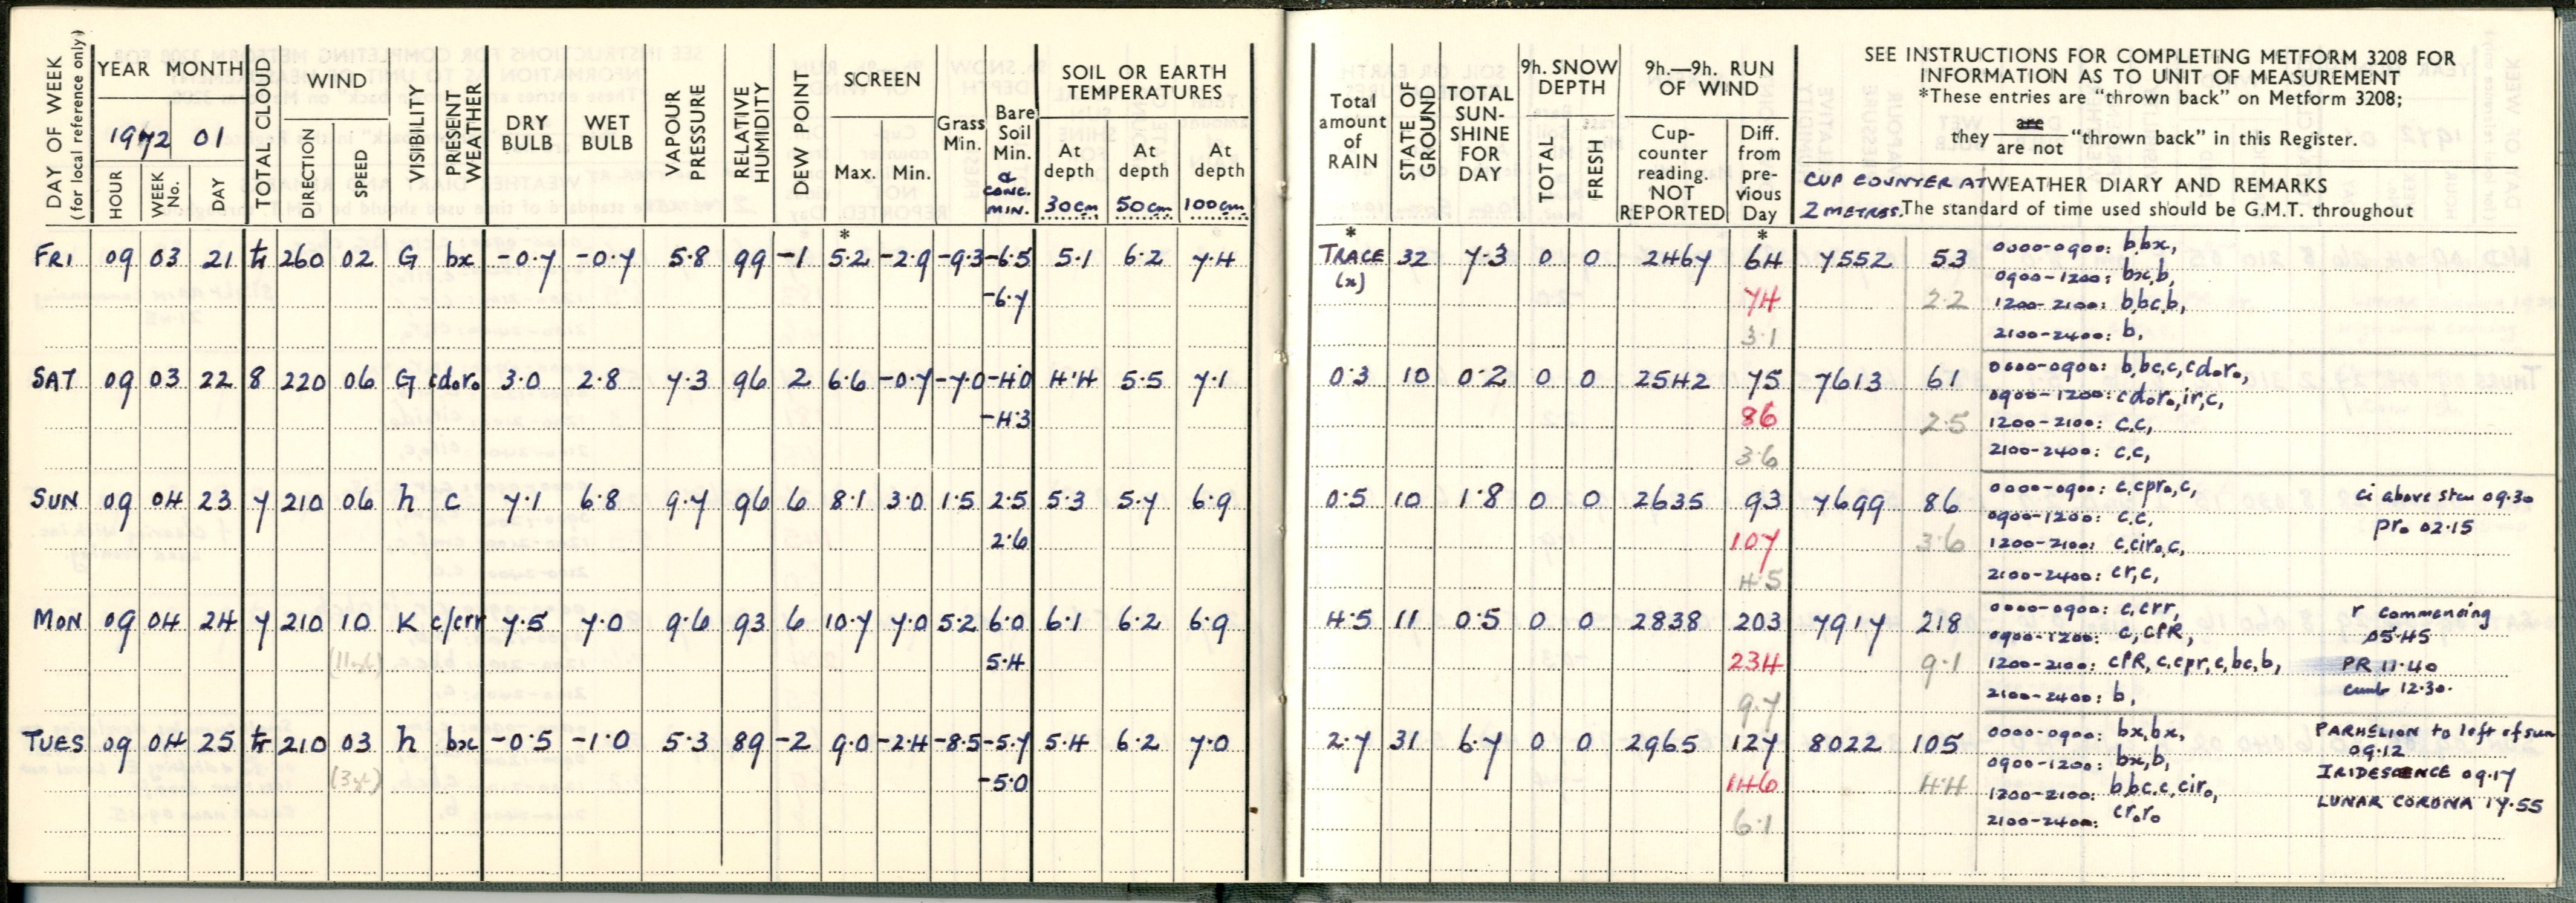 DAY OF WEEK
(for local reference only)
YEAR MONTH
1972 01
HOUR
WEEK No.
DAY
TOTAL CLOUD
WIND
DIRECTION
SPEED
VISIBILITY
PRESENT WEATHER
DRY BULB
WET BULB
VAPOUR PRESSURE
RELATIVE HUMIDITY
DEW POINT
SCREEN
Max. Min.
Grass Min.
Bare Soil Min.
& CONC. MIN.
SOIL OR EARTH TEMPERATURES
At depth 30cm
At depth 50cm
At depth 100cm
Total amount of RAIN
STATE OF GROUND
TOTAL SUN-SHINE FOR DAY
9h. SNOW DEPTH
TOTAL
FRESH
9h.—9h. RUN OF WIND
Cup-counter reading. NOT REPORTED
Diff. from pre-vious Day
SEE INSTRUCTIONS FOR COMPLETING METFORM 3208 FOR
INFORMATION AS TO UNIT OF MEASUREMENT
*These entries are "thrown back" on Metform 3208;
they are / are not "thrown back" in this Register.
CUP COUNTER AT 2 METRES.
WEATHER DIARY AND REMARKS
The standard of time used should be G.M.T. throughout
* * *
FRI 09 03 21 tr 260 02 G bx -0.7 -0.7 5.8 99 -1 5.2 -2.9 -9.3 -6.5 5.1 6.2 7.4 TRACE 32 7.3 0 0 2467 64 7552 53 0000-0900: bbx,
(x) 0900-1200: bx,b,
-6.7 74 2.2 1200-2100: b,bc,b,
3.1 2100-2400: b,
SAT 09 03 22 8 220 06 G cdoro 3.0 2.8 7.3 96 2 6.6 -0.7 -7.0 -4.0 4.4 5.5 7.1 0.3 10 0.2 0 0 2542 75 7613 61 0000-0900: b,bc,c,cdoro,
0900-1200: cdoro,ir,c,
-4.3 86 2.5 1200-2100: c,c,
3.6 2100-2400: c,c,
SUN 09 04 23 7 210 06 h c 7.1 6.8 9.7 96 6 8.1 3.0 1.5 2.5 5.3 5.7 6.9 0.5 10 1.8 0 0 2635 93 7699 86 0000-0900: c,cpro,c, ci above 09.30
0900-1200: c,c, pro 02.15
2.6 107 3.6 1200-2100: c,ciro,c,
4.5 2100-2400: cr,c,
MON 09 04 24 7 210 10 K c/crr 7.5 7.0 9.6 93 6 10.7 7.0 5.2 6.0 6.1 6.2 6.9 4.5 11 0.5 0 0 2838 203 7917 218 0000-0900: c,crr, r commencing
0900-1200: c,cPR, 05.45
5.4 234 9.1 1200-2100: cPR,c,cpr,c,bc,b, PR 11.40
9.7 2100-2400: b, cumb 12.30.
TUES 09 04 25 tr 210 03 h bx -0.5 -1.0 5.3 89 -2 9.0 -2.4 -8.5 -5.7 5.4 6.2 7.0 2.7 31 6.7 0 0 2965 127 8022 105 0000-0900: bx,bx, PARHELION to left of sun
09.12
0900-1200: bx,b, IRIDESCENCE 09.17
-5.0 146 4.4 1200-2100: b,bc,c,ciro, LUNAR CORONA 17.55
6.1 2100-2400: croro